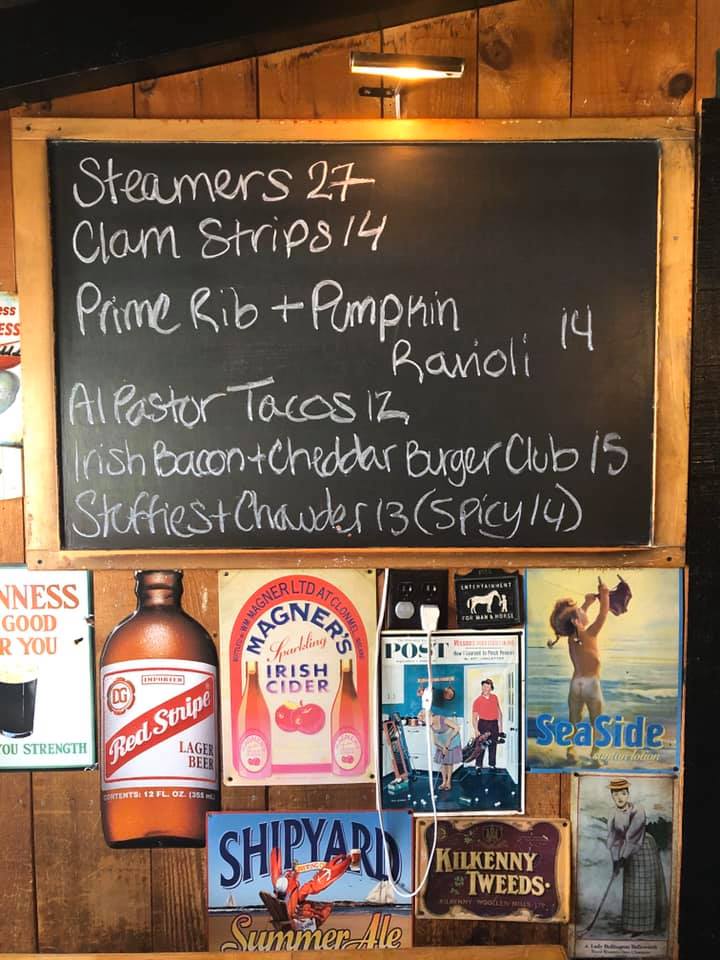 Steamers 27
Clam Strips 14
Prime Rib + Pumpkin
Ravioli 14
Al Pastor Tacos 12
Irish Bacon + Cheddar Burger Club 15
Stuffies + Chowder 13 (Spicy 14)
ESS
NNESS
GOOD
R YOU
OU STRENGTH
IMPORTED
DG
Red Stripe
LAGER
BEER
CONTENTS: 12 FL. OZ. (355
WM MAGNER LTD AT CLONMEL
MAGNER'S
Sparkling
IRISH
CIDER
ENTERTAINMENT
FOR MAN & HORSE
POST
SeaSide
suntan lotion
SHIPYARD
Summer Ale
KILKENNY
TWEEDS
KILKENNY WOOLLEN MILLS LTD